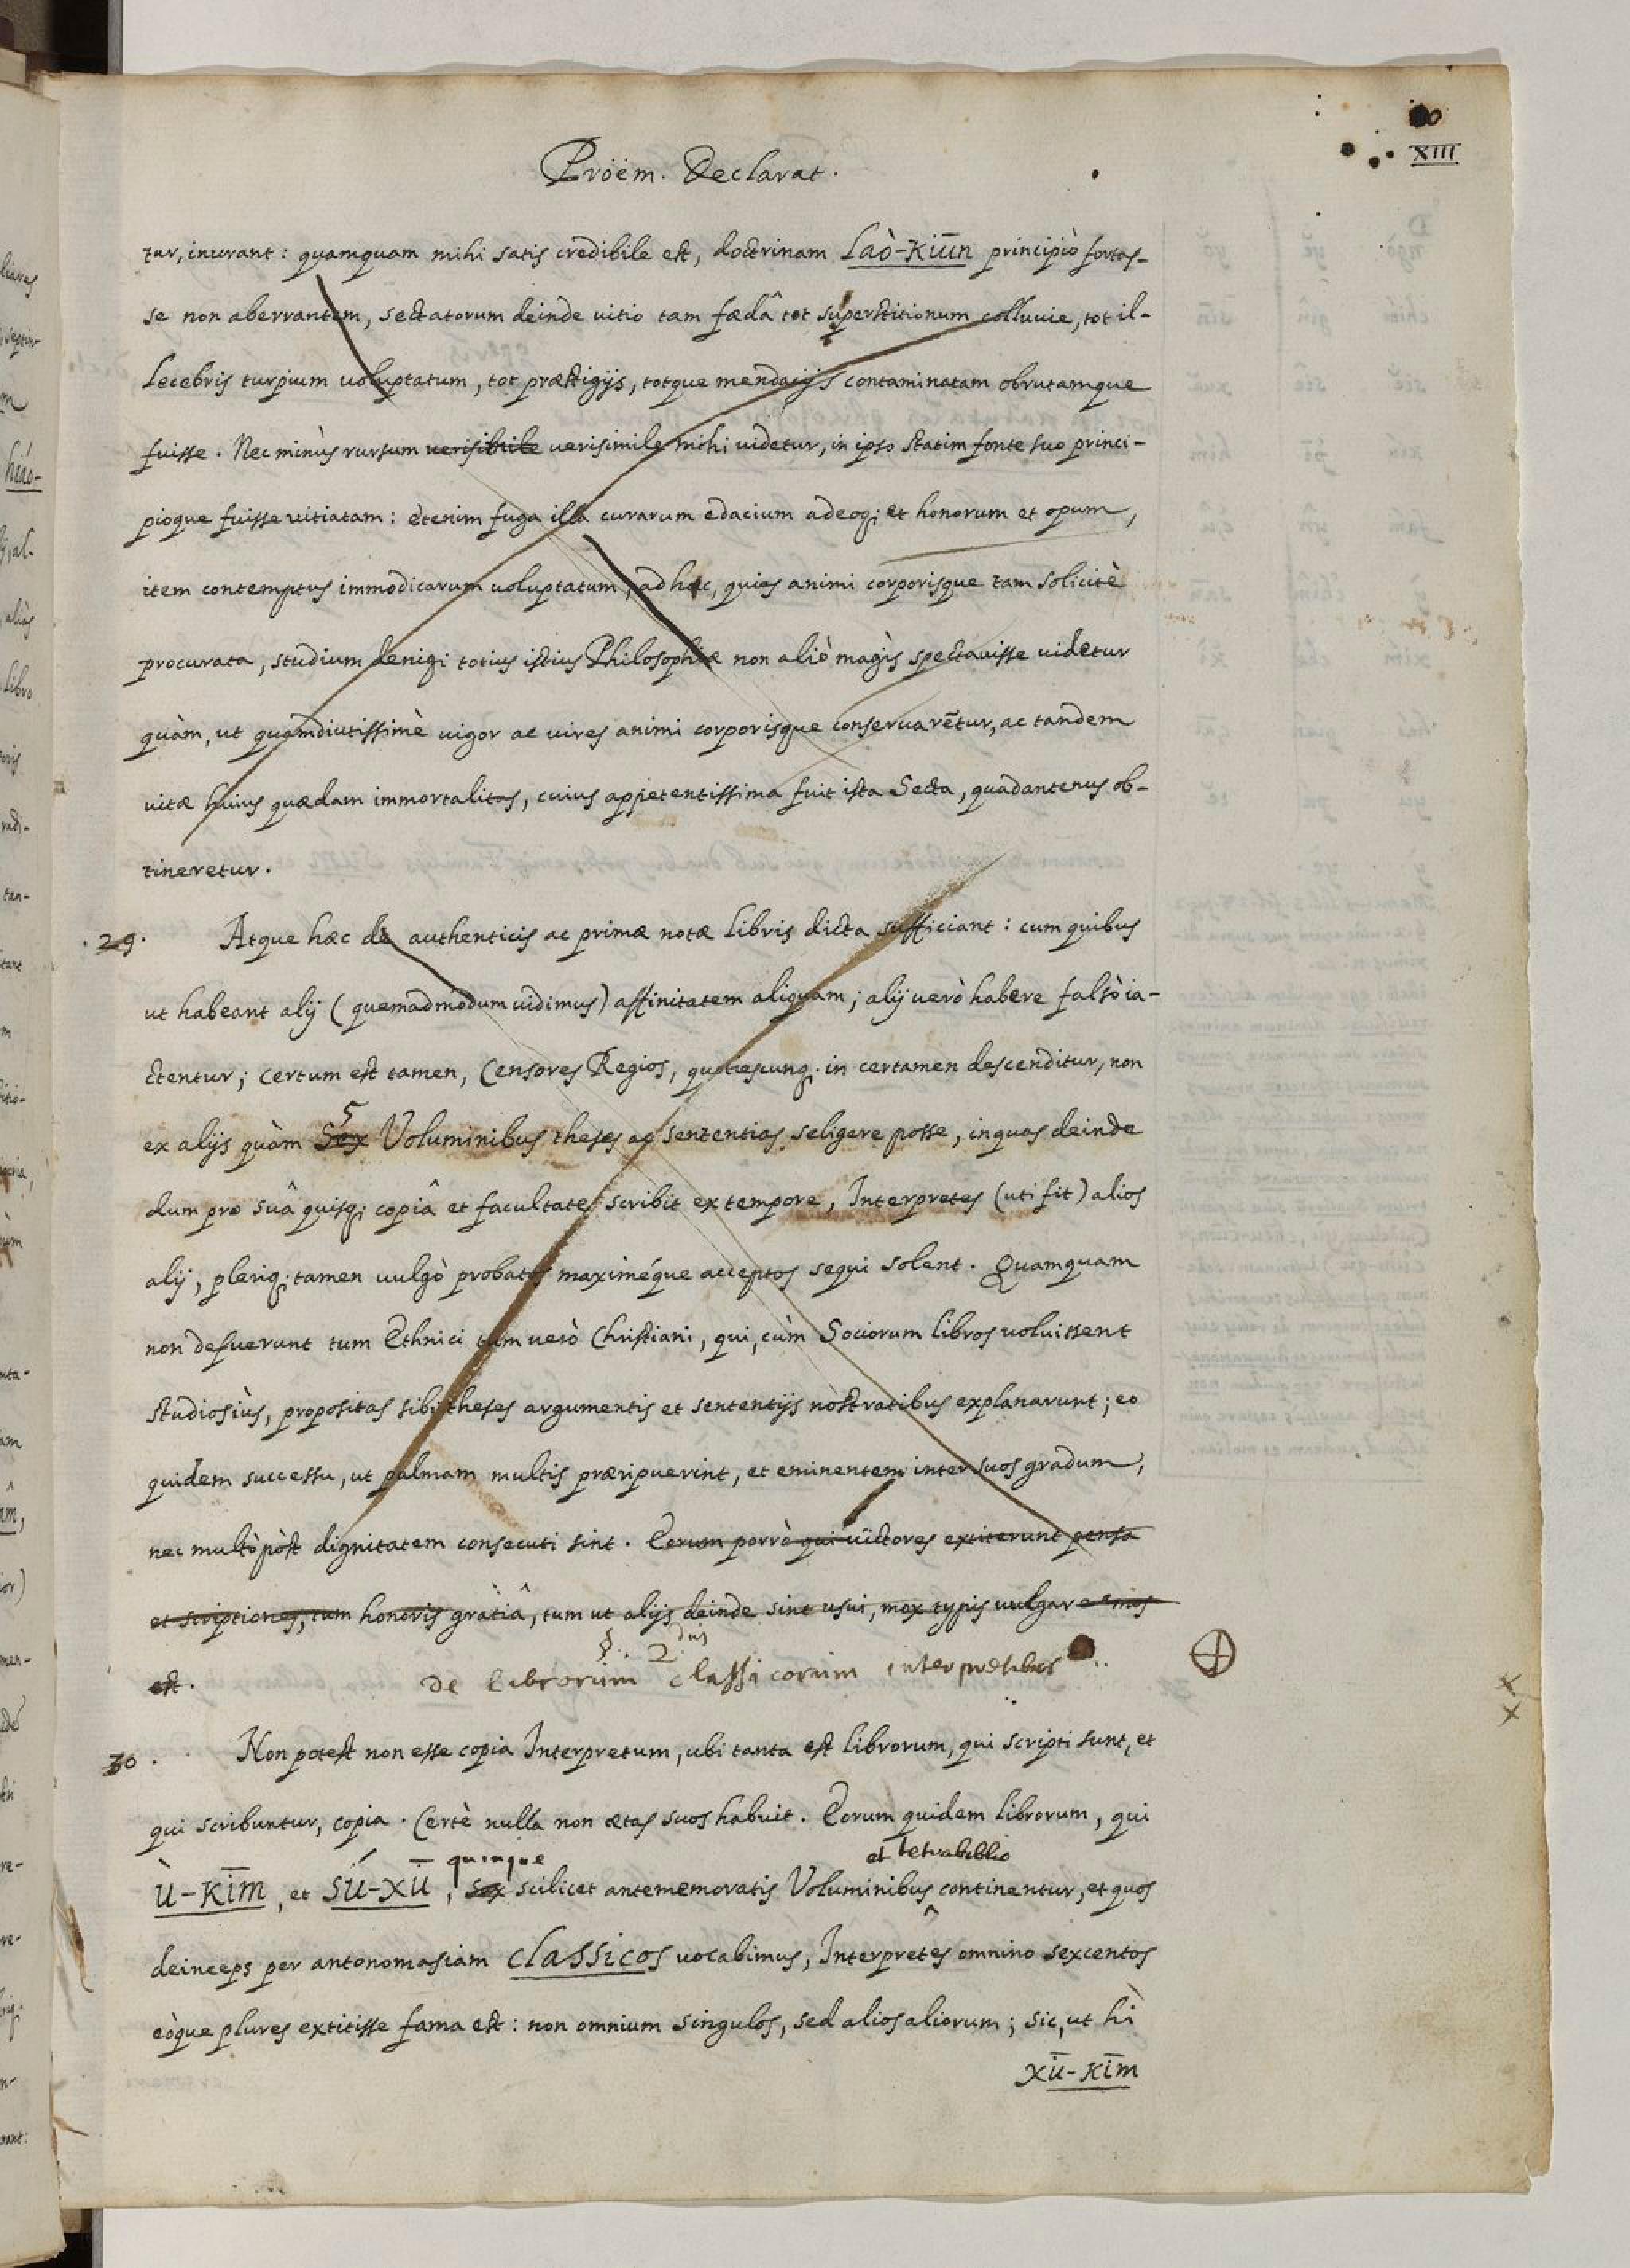 XIII
Pröem. Declarat.
tur, incurant: quamquam mihi satis credibile est, doctrinam Laò-Kiūn principiò fortas-
se non aberrantem, sectatorum deinde uitio tam fædâ tot superstitionum colluuie, tot il-
lecebris turpium uoluptatum, tot præstigijs, totque mendacijs contaminatam obrutamque
fuisse. Nec minùs rursum uerisimile mihi uidetur, in ipso statim fonte suo princi-
pioque fuisse uitiatam: etenim fuga illa curarum edacium adeoq; et honorum et opum,
item contemptus immodicarum uoluptatum, ad hæc, quies animi corporisque tam solicitè
procurata, studium deniq; totius istius Philosophiæ non aliò magìs spectauisse uidetur
quàm, ut quamdiutissimè uigor ac uires animi corporisque conseruarētur, ac tandem
uitæ huius quædam immortalitas, cuius appetentissima fuit ista Secta, quadantenus ob-
tineretur.
29. Atque hæc de authenticis ac primæ notæ libris dicta sufficiant: cum quibus
ut habeant alij (quemadmodum uidimus) affinitatem aliquam; alij uerò habere falsò ia-
ctentur; certum est tamen, Censores Regios, quotiescunq; in certamen descenditur, non
5
ex alijs quàm Sex Voluminibus theses ac sententias seligere posse, in quas deinde
dum pro suâ quisq; copiâ et facultate scribit ex tempore, Interpretes (uti fit) alios
alij, pleriq; tamen uulgò probatos maximéque acceptos sequi solent. Quamquam
non defuerunt tum Ethnici tum uerò Christiani, qui, cùm Sociorum libros uoluissent
studiosiùs, propositas sibi theses argumentis et sententijs nostratibus explanarunt; eo
quidem successu, ut palmam multis præripuerint, et eminentem inter suos gradum,
nec multò pòst dignitatem consecuti sint. Eorum porrò qui uictores extiterunt pensa
et scriptiones, tum honoris gratiâ, tum ut alijs deinde sint usui, mox typis uulgare mos
§. 2dus
est. De librorum classicorum interpretibus
30. Non potest non esse copia Interpretum, ubi tanta est librorum, qui scripti sunt, et
qui scribuntur, copia. Certè nulla non ætas suos habuit. Eorum quidem librorum, qui
quinque et tetrabiblio
Ù-Kīm, et Sú-Xū, sex scilicet antememoratis Voluminibus continentur, et quos
deinceps per antonomasiam classicos uocabimus, Interpretes omnino sexcentos
eòque plures extitisse fama est: non omnium singulos, sed alios aliorum; sic, ut hì
Xū-Kīm